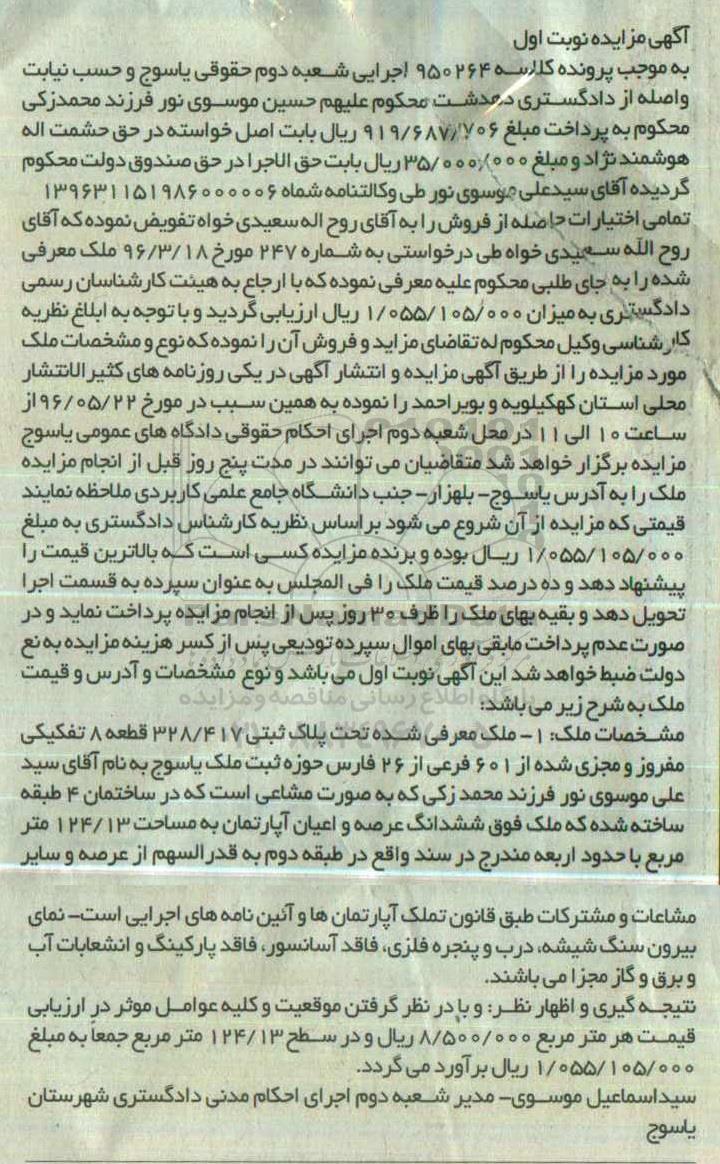 آگهی مزایده نوبت اول
به موجب پرونده کلاسه ۹۵۰۲۶۴ اجرایی شعبه دوم حقوقی یاسوج و حسب نیابت
واصله از دادگستری دهدشت محکوم علیهم حسین موسوی نور فرزند محمدزکی
محکوم به پرداخت مبلغ ۹۱۹/۶۸۷/۷۰۶ ریال بابت اصل خواسته در حق حشمت اله
هوشمند نژاد و مبلغ ۳۵/۰۰۰/۰۰۰ ریال بابت حق الاجرا در حق صندوق دولت محکوم
گردیده آقای سیدعلی موسوی نور طی وکالتنامه شماه ۱۳۹۶۳۱۱۵۱۹۸۶۰۰۰۰۰۶
تمامی اختیارات حاصله از فروش را به آقای روح اله سعیدی خواه تفویض نموده که آقای
روح الله سعیدی خواه طی درخواستی به شماره ۲۴۷ مورخ ۹۶/۳/۱۸ ملک معرفی
شده را به جای طلبی محکوم علیه معرفی نموده که با ارجاع به هیئت کارشناسان رسمی
دادگستری به میزان ۱/۰۵۵/۱۰۵/۰۰۰ ریال ارزیابی گردید و با توجه به ابلاغ نظریه
کارشناسی وکیل محکوم له تقاضای مزاید و فروش آن را نموده که نوع و مشخصات ملک
مورد مزایده را از طریق آگهی مزایده و انتشار آگهی در یکی روزنامه های کثیرالانتشار
محلی استان کهکیلویه و بویراحمد را نموده به همین سبب در مورخ ۹۶/۰۵/۲۲ از
ساعت ۱۰ الی ۱۱ در محل شعبه دوم اجرای احکام حقوقی دادگاه های عمومی یاسوج
مزایده برگزار خواهد شد متقاضیان می توانند در مدت پنج روز قبل از انجام مزایده
ملک را به آدرس یاسوج- بلهزار- جنب دانشگاه جامع علمی کاربردی ملاحظه نمایند
قیمتی که مزایده از آن شروع می شود بر اساس نظریه کارشناس دادگستری به مبلغ
۱/۰۵۵/۱۰۵/۰۰۰ ریال بوده و برنده مزایده کسی است که بالاترین قیمت را
پیشنهاد دهد و ده درصد قیمت ملک را فی المجلس به عنوان سپرده به قسمت اجرا
تحویل دهد و بقیه بهای ملک را ظرف ۳۰ روز پس از انجام مزایده پرداخت نماید و در
صورت عدم پرداخت مابقی بهای اموال سپرده تودیعی پس از کسر هزینه مزایده به نع
دولت ضبط خواهد شد این آگهی نوبت اول می باشد و نوع مشخصات و آدرس و قیمت
ملک به شرح زیر می باشد:
مشخصات ملک: ۱- ملک معرفی شده تحت پلاک ثبتی ۳۲۸/۴۱۷ قطعه ۸ تفکیکی
مفروز و مجزی شده از ۶۰۱ فرعی از ۲۶ فارس حوزه ثبت ملک یاسوج به نام آقای سید
علی موسوی نور فرزند محمد زکی که به صورت مشاعی است که در ساختمان ۴ طبقه
ساخته شده که ملک فوق ششدانگ عرصه و اعیان آپارتمان به مساحت ۱۲۴/۱۳ متر
مربع با حدود اربعه مندرج در سند واقع در طبقه دوم به قدرالسهم از عرصه و سایر
مشاعات و مشترکات طبق قانون تملک آپارتمان ها و آئین نامه های اجرایی است- نمای
بیرون سنگ شیشه، درب و پنجره فلزی، فاقد آسانسور، فاقد پارکینگ و انشعابات آب
و برق و گاز مجزا می باشند.
نتیجه گیری و اظهار نظر: و با در نظر گرفتن موقعیت و کلیه عوامل موثر در ارزیابی
قیمت هر متر مربع ۸/۵۰۰/۰۰۰ ریال و در سطح ۱۲۴/۱۳ متر مربع جمعاً به مبلغ
۱/۰۵۵/۱۰۵/۰۰۰ ریال برآورد می گردد.
سیداسماعیل موسوی- مدیر شعبه دوم اجرای احکام مدنی دادگستری شهرستان
یاسوج